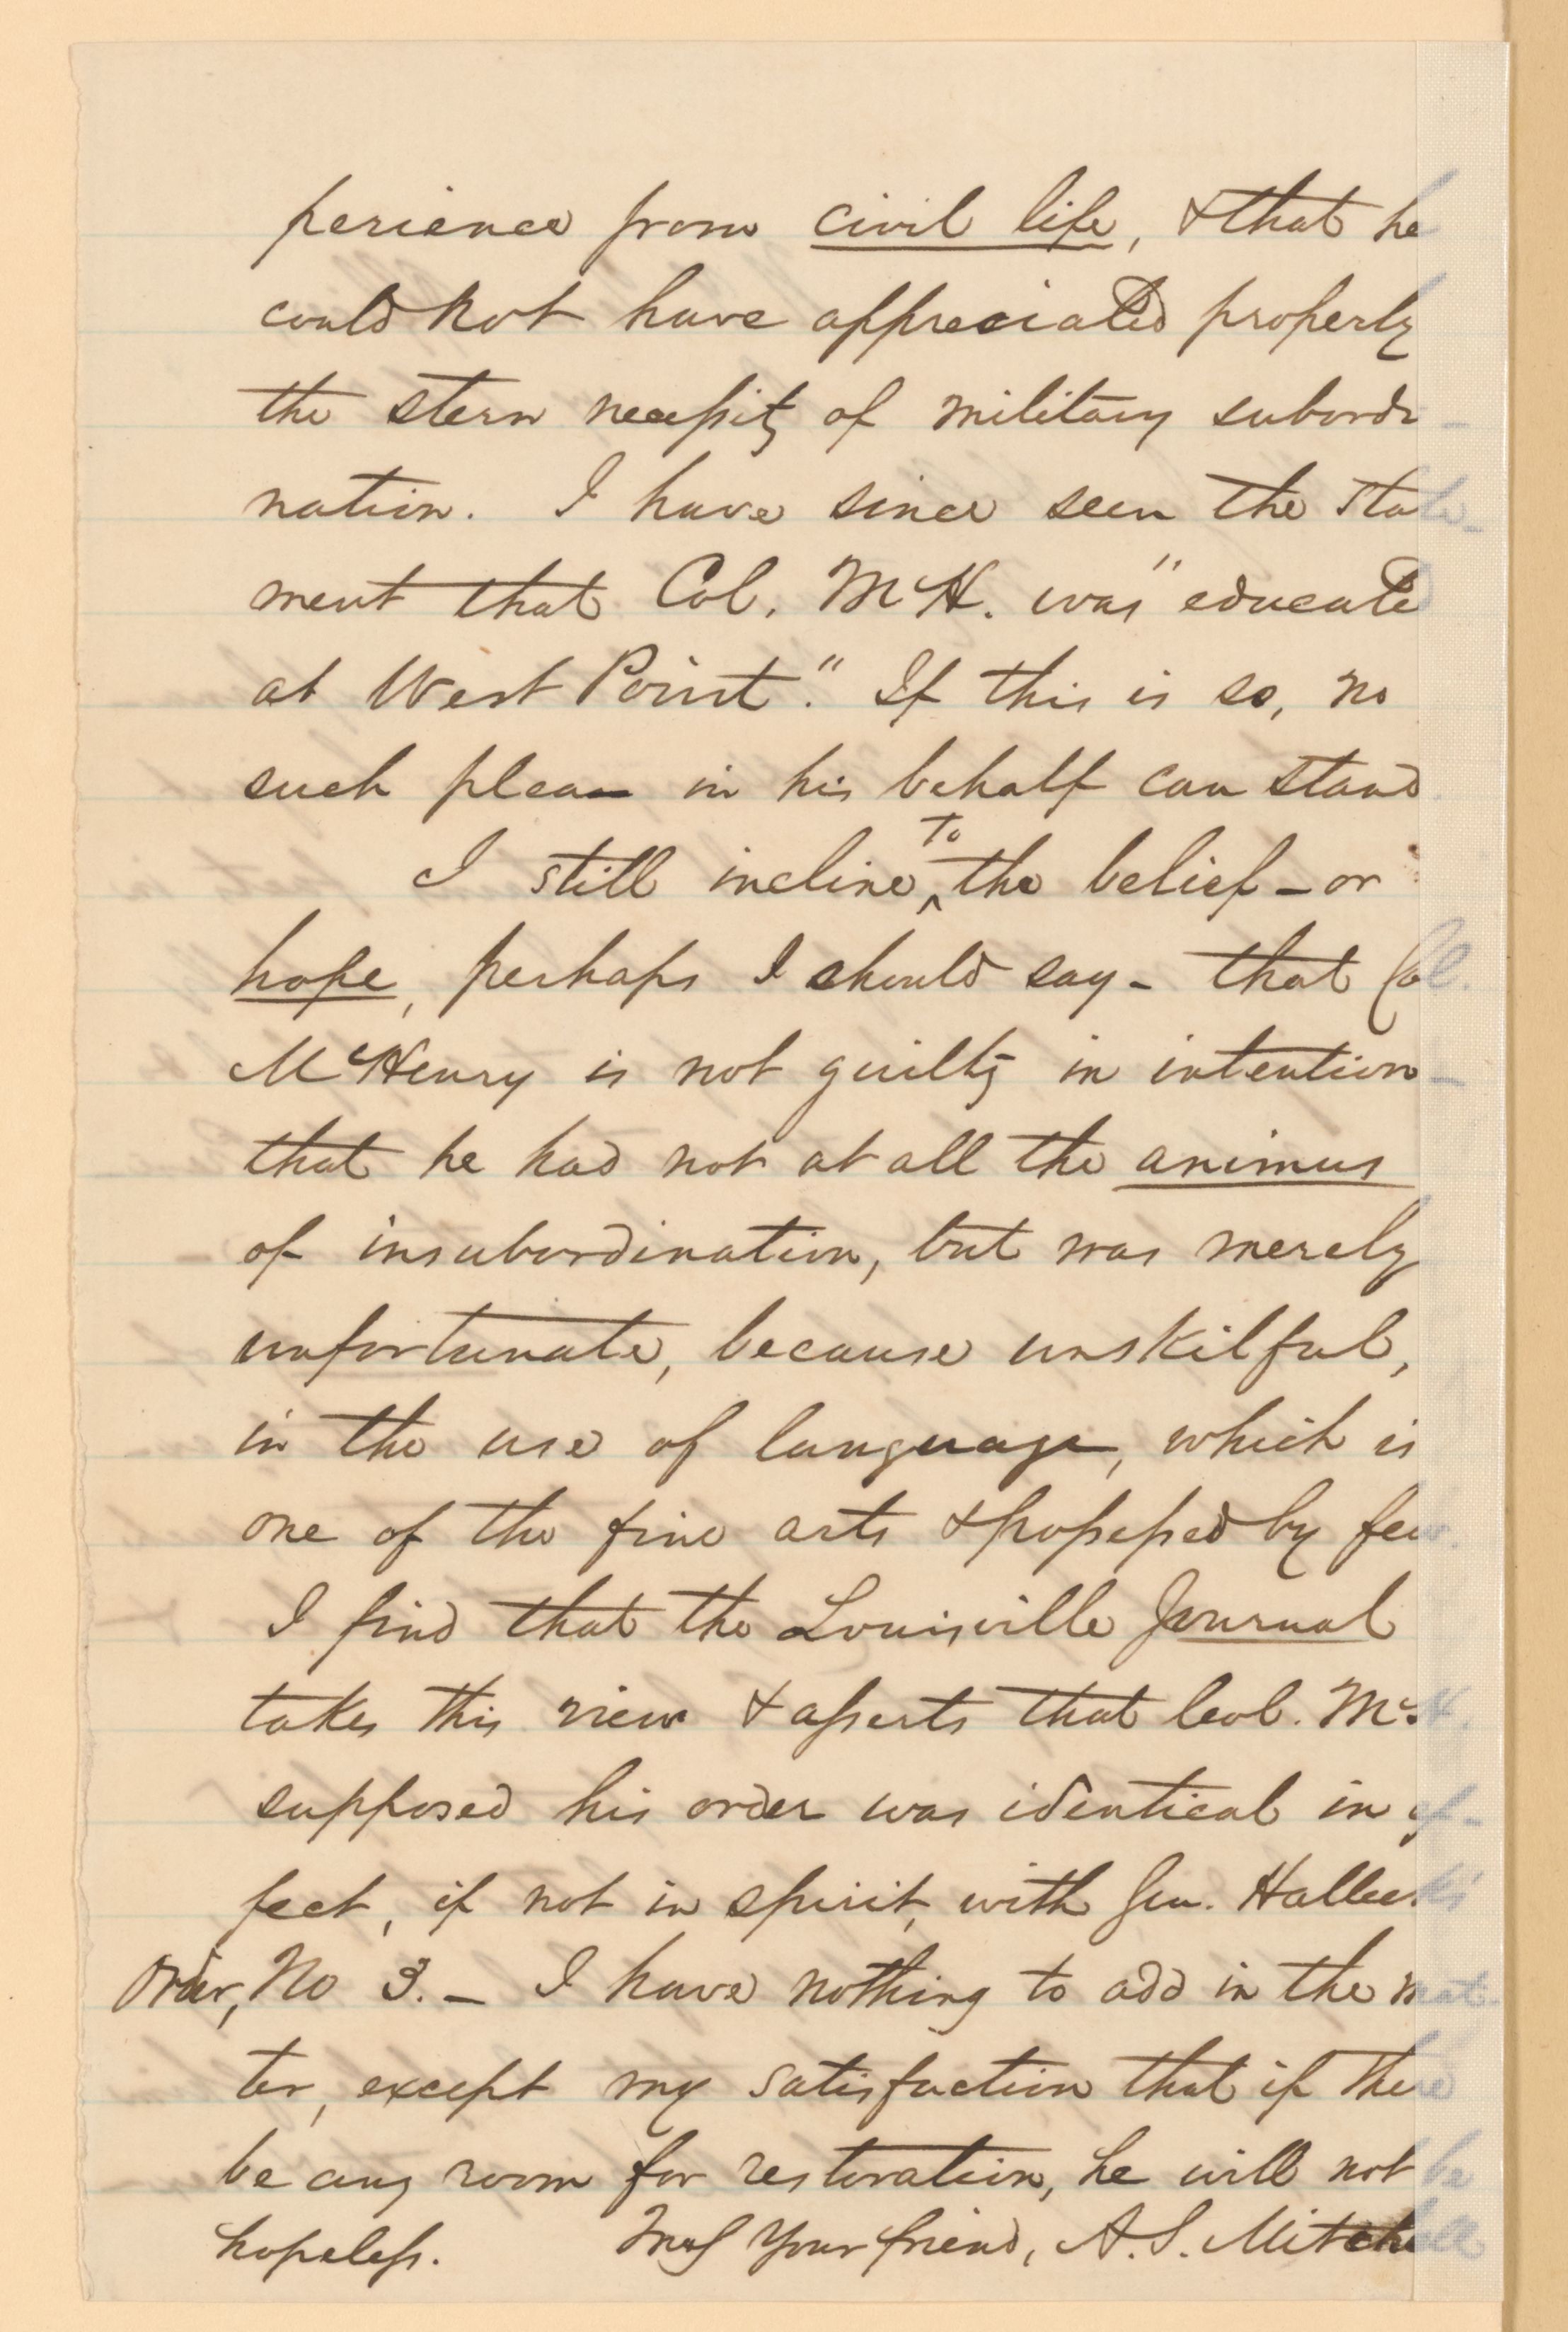 perience from civil life, & that he
could not have appreciated properly
the stern necessity of military subordi-
nation. I have since seen the state-
ment that Col. McH. was "educated
at West Point." If this is so, no
such plea in his behalf can stand
I still incline to the belief - or
hope, perhaps I should say - that Col.
McHenry is not guilty in intention -
that he had not at all the animus
of insubordination, but was merely
unfortunate, because unskilful,
in the use of language, which is
one of the fine arts & possessed by few.
I find that the Louisville Journal
takes this view & asserts that Col. McH.
supposed his order was identical in ef-
fect, if not in spirit, with Gen. Halleck's
Order, No 3. - I have nothing to add in the mat-
ter, except my satisfaction that if there
be any room for restoration, he will not be
hopeless. Truly Your friend, A. S. Mitchell